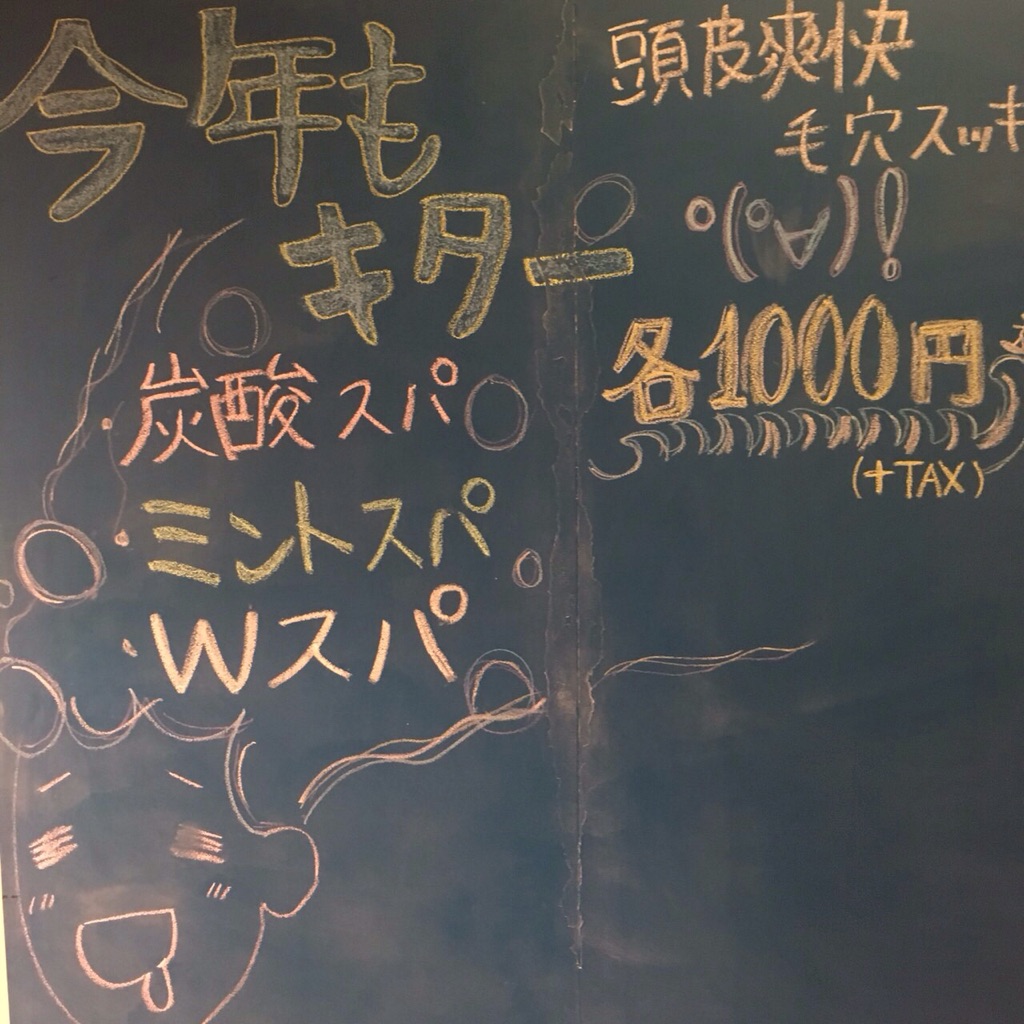 今年も
キター
炭酸スパ
ミントスパ
Wスパ
頭皮爽快
毛穴スッキ
°(°∀)!
各1000円
(+TAX)